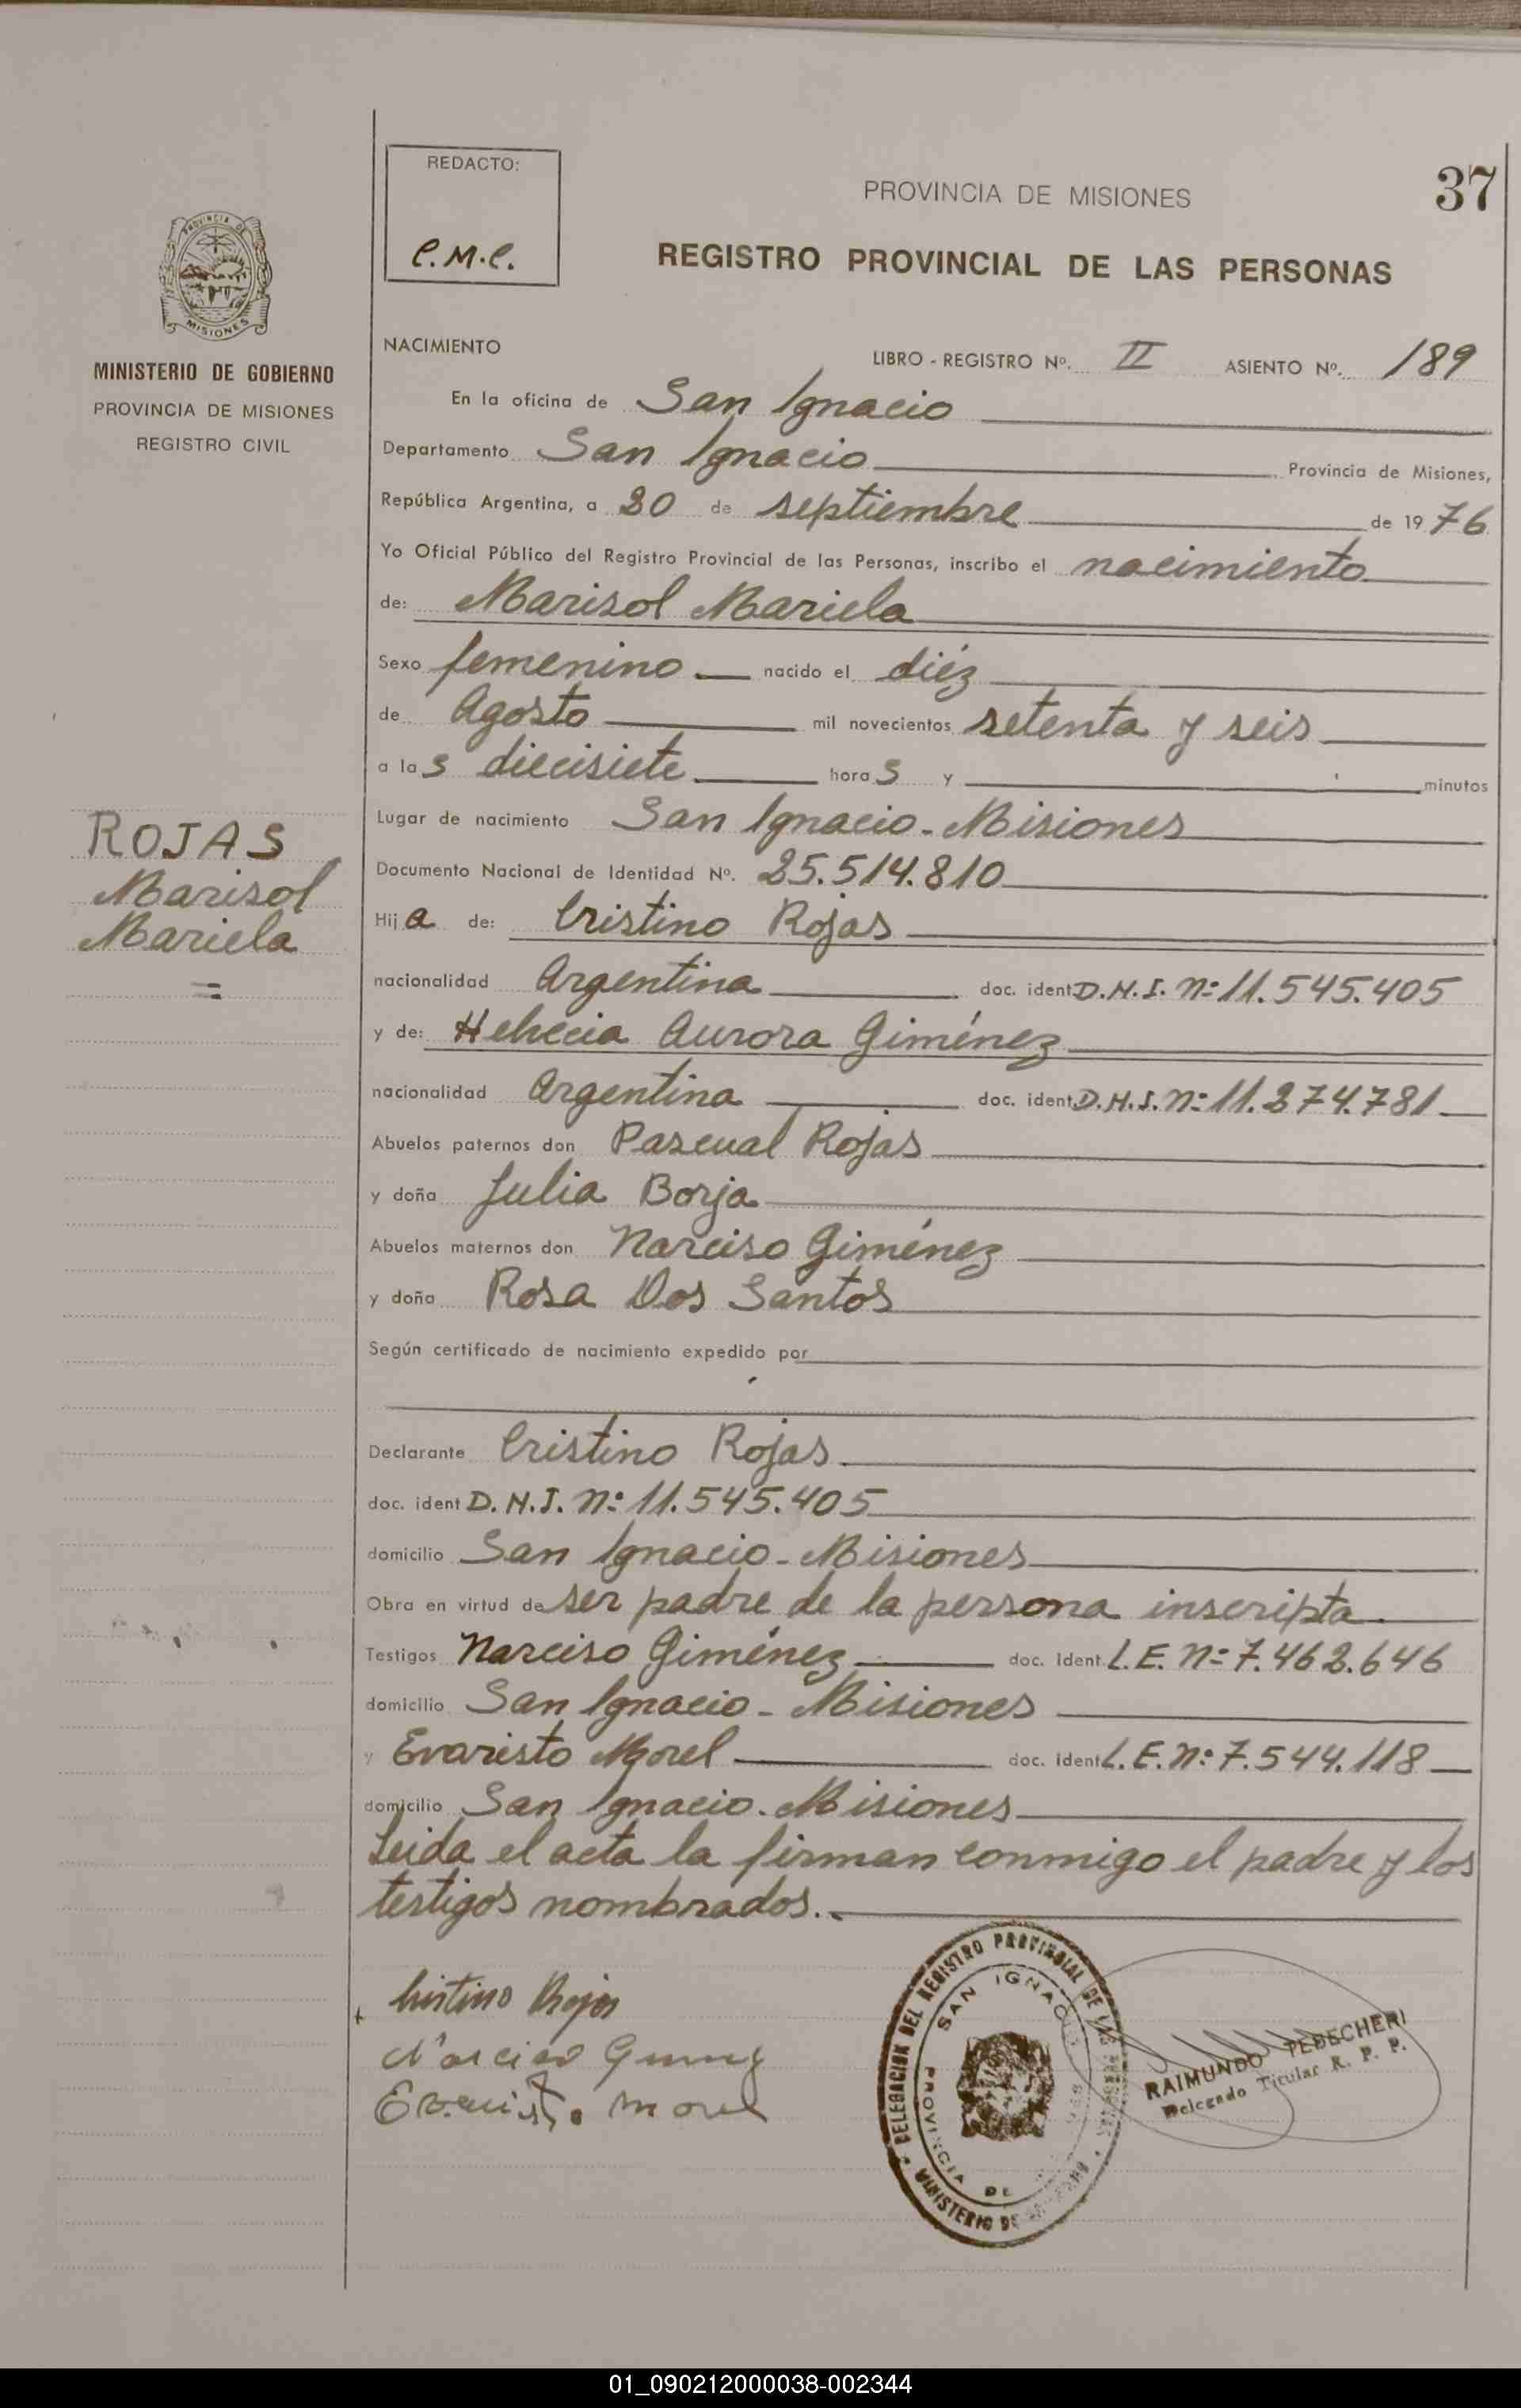 REDACTO:
C.M.C.
PROVINCIA DE MISIONES
37
REGISTRO PROVINCIAL DE LAS PERSONAS
PROVINCIA DE
MISIONES
MINISTERIO DE GOBIERNO
PROVINCIA DE MISIONES
REGISTRO CIVIL
NACIMIENTO
LIBRO - REGISTRO Nº. II ASIENTO Nº. 189
En la oficina de San Ignacio
Departamento San Ignacio Provincia de Misiones,
República Argentina, a 20 de septiembre de 1976
Yo Oficial Público del Registro Provincial de las Personas, inscribo el nacimiento
de: Marisol Mariela
Sexo femenino nacido el diéz
de Agosto mil novecientos setenta y seis
a las diecisiete horas y minutos
Lugar de nacimiento San Ignacio - Misiones
ROJAS
Marisol
Mariela
=
Documento Nacional de Identidad Nº. 25.514.810
Hija de: Cristino Rojas
nacionalidad Argentina doc. ident D.N.I. Nº 11.545.405
y de: Aurora Giménez
nacionalidad Argentina doc. ident D.N.I. Nº 11.274.781
Abuelos paternos don Pascual Rojas
y doña Julia Borja
Abuelos maternos don Narciso Giménez
y doña Rosa Dos Santos
Según certificado de nacimiento expedido por
Declarante Cristino Rojas
doc. ident D.N.I. Nº 11.545.405
domicilio San Ignacio - Misiones
Obra en virtud de ser padre de la persona inscripta
Testigos Narciso Giménez doc. ident. L.E. Nº 7.462.646
domicilio San Ignacio - Misiones
y Evaristo Morel doc. ident L.E. Nº 7.544.118
domicilio San Ignacio - Misiones
Leida el acta la firman conmigo el padre y los
testigos nombrados.
Cristino Rojas
Narciso
Evaristo Morel
DELEGACION DEL REGISTRO PROVINCIAL DE LAS PERSONAS
SAN IGNACIO
PROVINCIA DE
MINISTERIO DE
RAIMUNDO
Delegado Titular R. P. P.
01_090212000038-002344